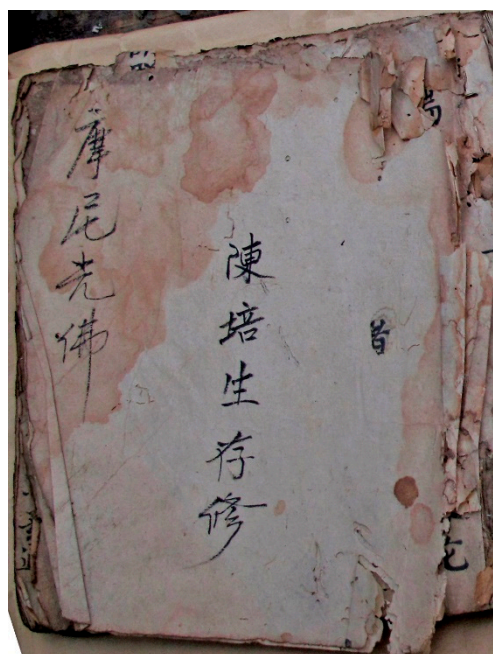 摩尼光佛
陳培生存修
昔